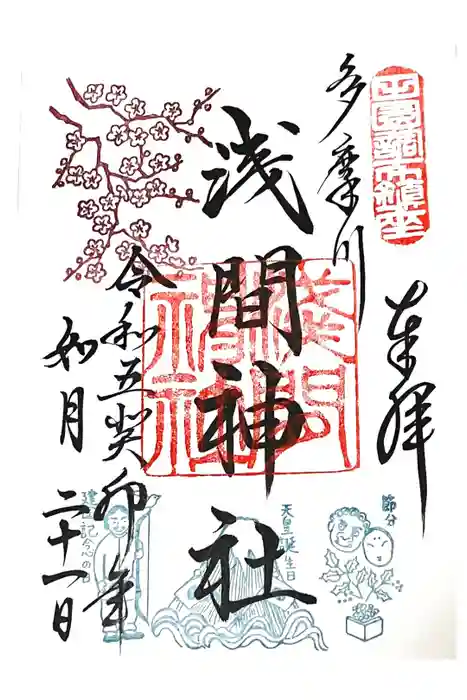 奉拝
多摩川
浅間神社
令和五癸卯年
如月二十一日
浅間神社
節分
天皇誕生日
建国記念の日